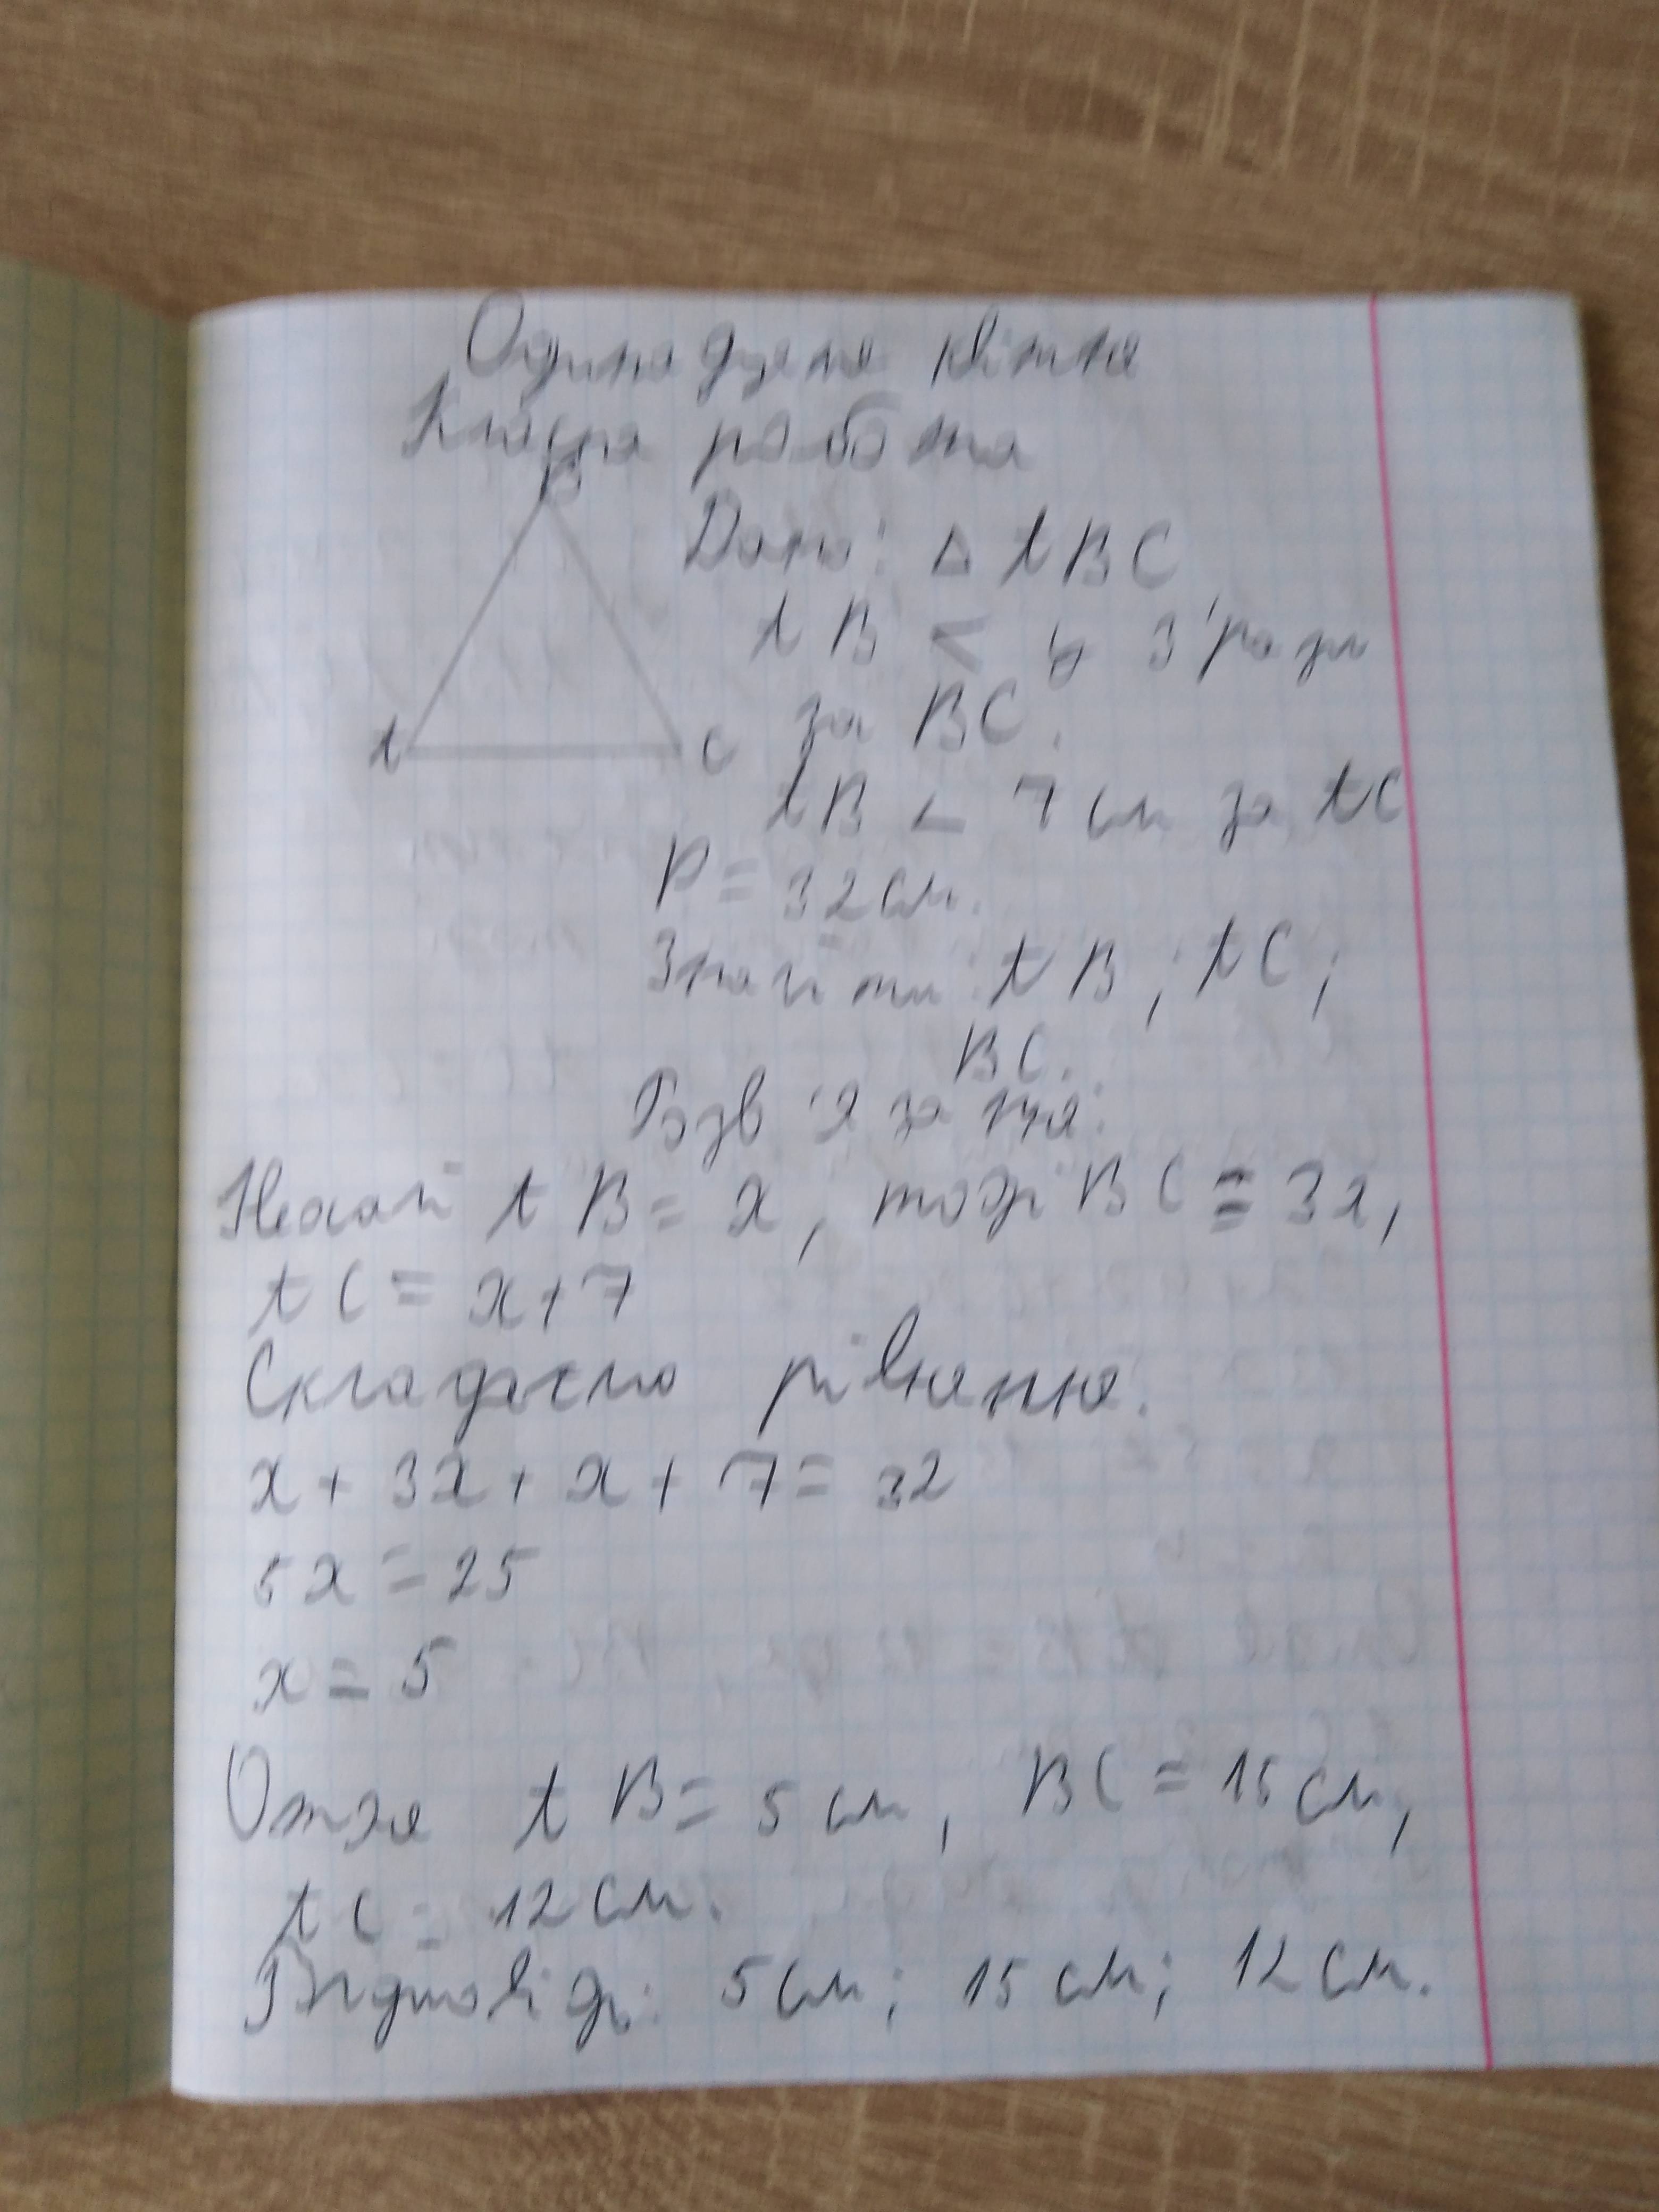 Одинадцяте квітня
Класна робота
B
Дано: Δ ABC
AB < в 3 рази
за BC.
A C
AB < 7 см за AC
P = 32 см.
Знайти: AB; AC;
BC.
Розв'язання:
Нехай AB = x, тоді BC = 3x,
AC = x + 7
Складаємо рівняння.
x + 3x + x + 7 = 32
5x = 25
x = 5
Отже AB = 5 см, BC = 15 см,
AC = 12 см.
Відповідь: 5 см; 15 см; 12 см.